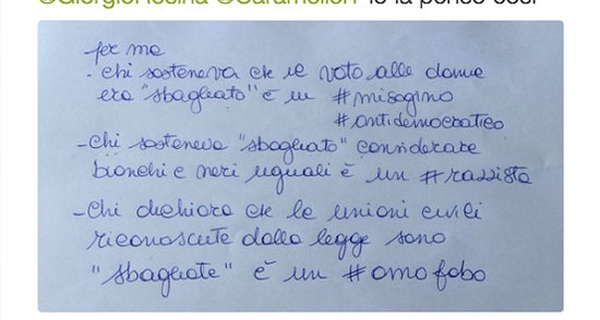 io la penso così
per me
- chi sosteneva che il voto alle donne
era "sbagliato" è un #misogino
#antidemocratico
- chi sosteneva "sbagliato" considerare
bianchi e neri uguali è un #razzista
- Chi dichiara che le unioni civili
riconosciute dalla legge sono
"sbagliate" è un #omofobo